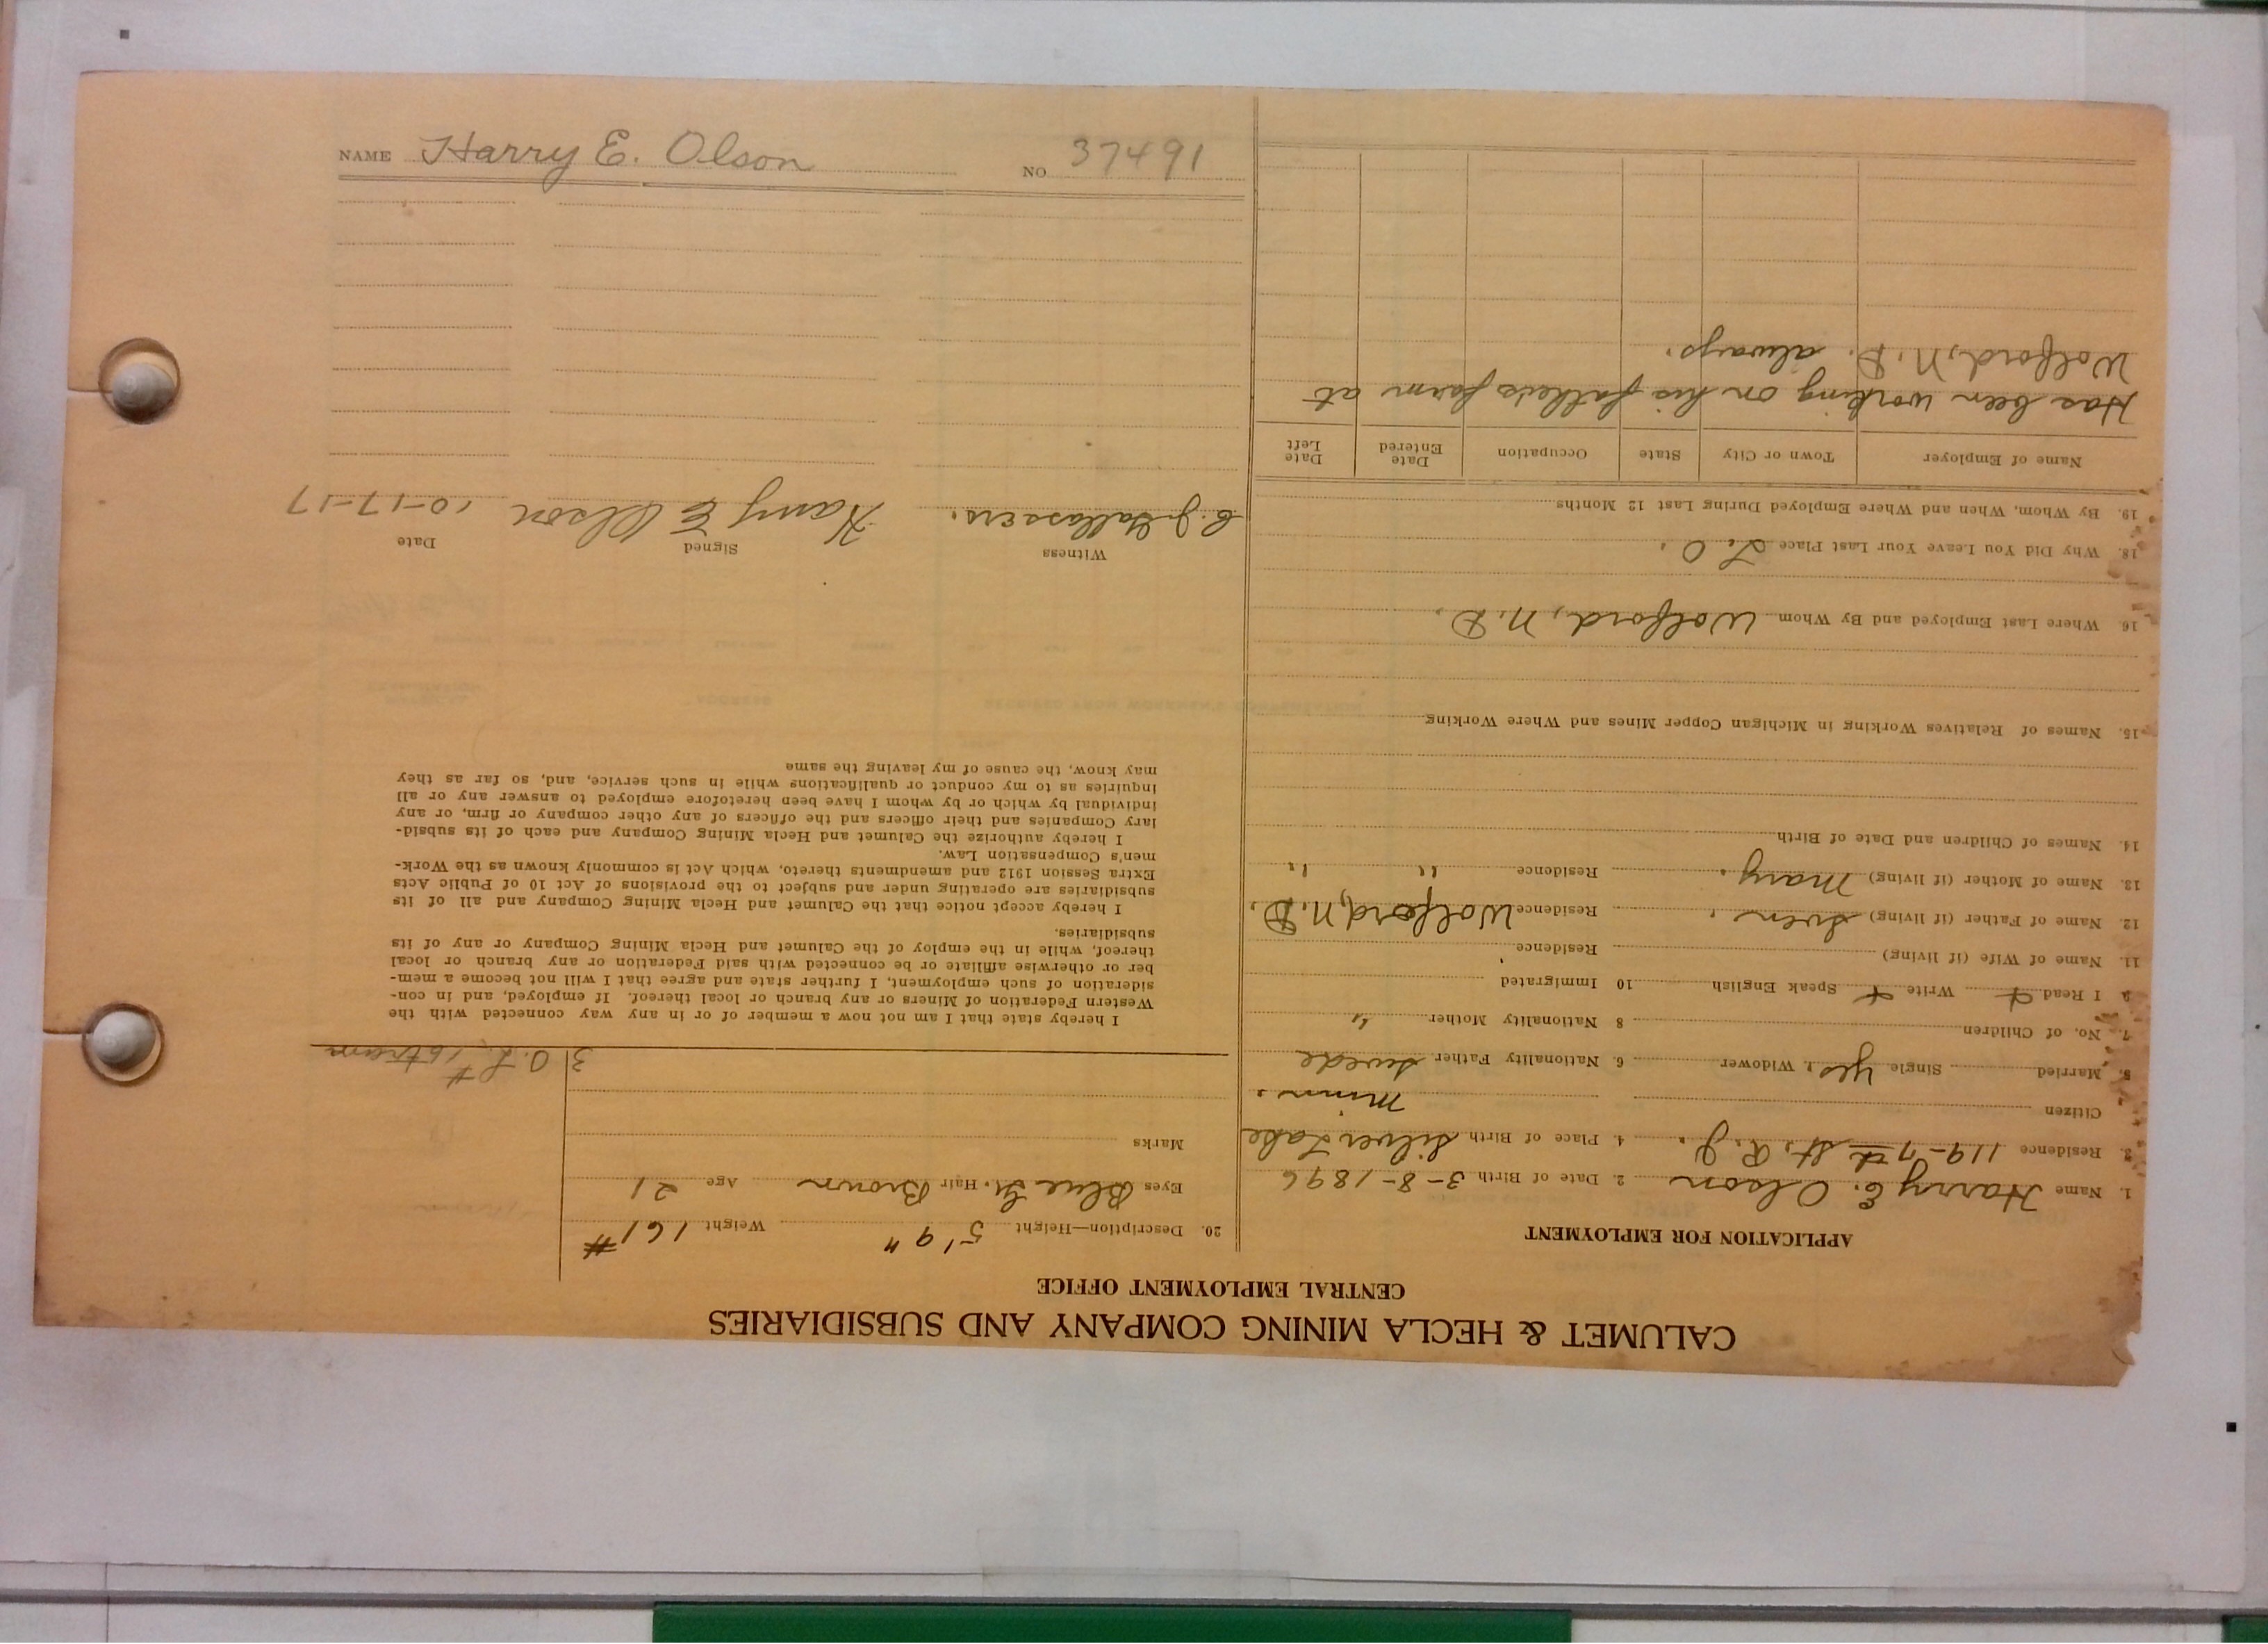 CALUMET & HECLA MINING COMPANY AND SUBSIDIARIES
CENTRAL EMPLOYMENT OFFICE
APPLICATION FOR EMPLOYMENT
1. Name Harry E. Olson 2. Date of Birth 3-8-1896
3. Residence 119-7th St. R.J. 4. Place of Birth Silver Lake
Citizen Minn.
5. Married Single yes. Widower 6. Nationality Father Swede
7. No. of Children 8 Nationality Mother "
9. I Read Write Speak English 10 Immigrated
11. Name of Wife (if living) Residence
12. Name of Father (if living) Sven. Residence Wolford, N.D.
13. Name of Mother (if living) Mary. Residence " "
14. Names of Children and Date of Birth
15. Names of Relatives Working in Michigan Copper Mines and Where Working
16. Where Last Employed and By Whom Wolford, N.D.
18. Why Did You Leave Your Last Place L.O.
19. By Whom, When and Where Employed During Last 12 Months
Name of Employer Town or City State Occupation Date Entered Date Left
Has been working on his father's farm at
Wolford, N.D. always.
20. Description—Height 5'9" Weight 161#
Eyes Blue Gr. Hair Brown Age 21
Marks
I hereby state that I am not now a member of or in any way connected with the
Western Federation of Miners or any branch or local thereof. If employed, and in con-
sideration of such employment, I further state and agree that I will not become a mem-
ber or otherwise affiliate or be connected with said Federation or any branch or local
thereof, while in the employ of the Calumet and Hecla Mining Company or any of its
subsidiaries.
I hereby accept notice that the Calumet and Hecla Mining Company and all of its
subsidiaries are operating under and subject to the provisions of Act 10 of Public Acts
Extra Session 1912 and amendments thereto, which Act is commonly known as the Work-
men's Compensation Law.
I hereby authorize the Calumet and Hecla Mining Company and each of its subsid-
iary Companies and their officers and the officers of any other company or firm, or any
individual by which or by whom I have been heretofore employed to answer any or all
inquiries as to my conduct or qualifications while in such service, and, so far as they
may know, the cause of my leaving the same
Witness Signed Date
Harry E Olson 10-17-17
NAME Harry E. Olson NO 37491